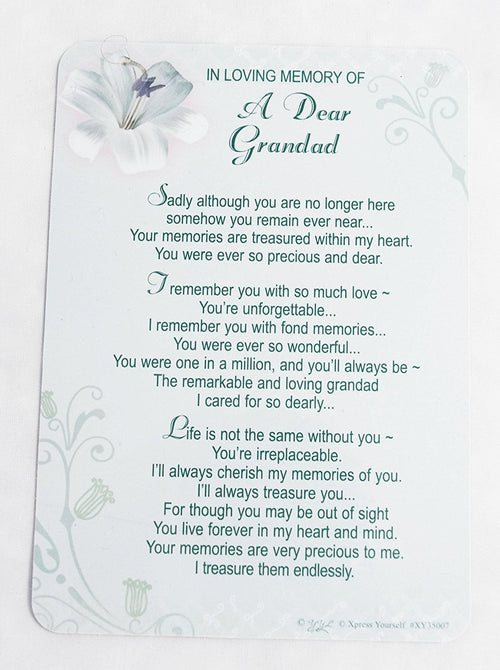 IN LOVING MEMORY OF
A Dear
Grandad
Sadly although you are no longer here
somehow you remain ever near...
Your memories are treasured within my heart.
You were ever so precious and dear.
I remember you with so much love ~
You're unforgettable...
I remember you with fond memories...
You were ever so wonderful...
You were one in a million, and you'll always be ~
The remarkable and loving grandad
I cared for so dearly...
Life is not the same without you ~
You're irreplaceable.
I'll always cherish my memories of you.
I'll always treasure you...
For though you may be out of sight
You live forever in my heart and mind.
Your memories are very precious to me.
I treasure them endlessly.
© © Xpress Yourself #XY35007